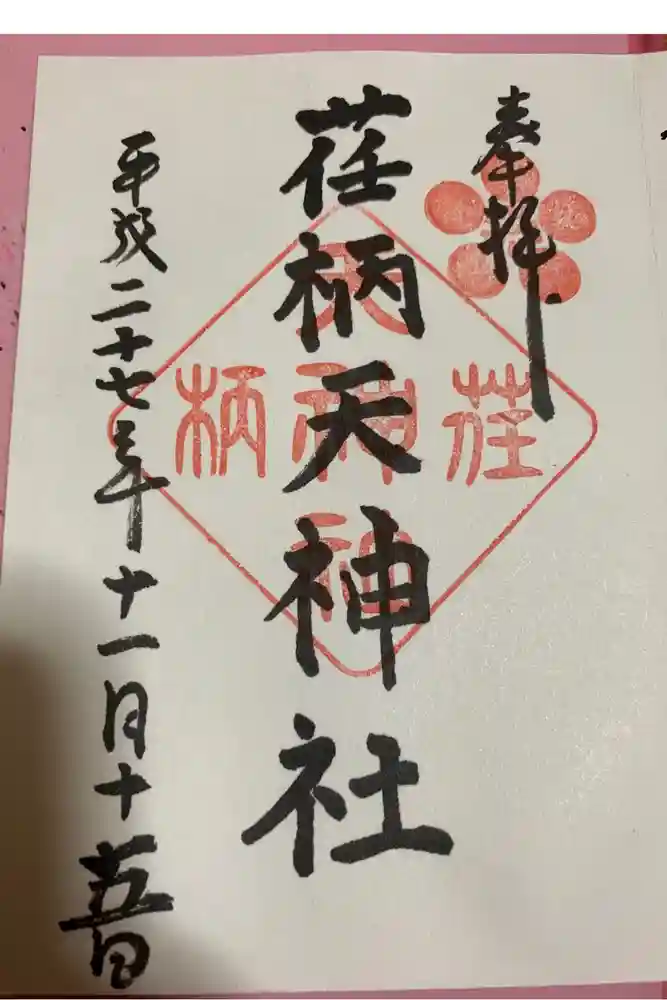 奉拝
荏柄天神社
平成二十七年十一月十五日
荏
柄
天
神
社